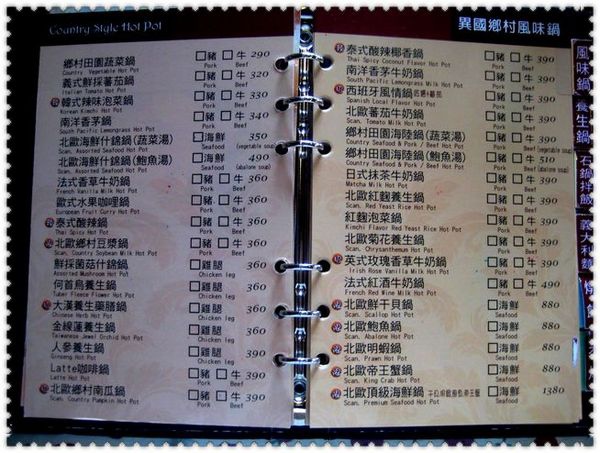 Country Style Hot Pot
鄉村田園蔬菜鍋 □豬 □牛 290
Country Vegetable Hot Pot Pork Beef
義式鮮採蕃茄鍋 □豬 □牛 320
Italian Tomato Hot Pot Pork Beef
韓式辣味泡菜鍋 □豬 □牛 330
Korean Kimchi Hot Pot Pork Beef
南洋香茅鍋 □豬 □牛 340
South Pacific Lemongrass Hot Pot Pork Beef
北歐海鮮什錦鍋(蔬菜湯) □海鮮 350
Scan. Assorted Seafood Hot Pot Seafood (vegetable soup)
北歐海鮮什錦鍋(鮑魚湯) □海鮮 490
Scan. Assorted Seafood Hot Pot Seafood (abalone soup)
法式香草牛奶鍋 □豬 □牛 360
French Vanilla Milk Hot Pot Pork Beef
歐式水果咖哩鍋 □豬 □牛 360
European Fruit Curry Hot Pot Pork Beef
泰式酸辣鍋 □豬 □牛 360
Thai Spicy Hot Pot Pork Beef
北歐鄉村豆漿鍋 □豬 □牛 360
Scan. Country Soybean Milk Hot Pot Pork Beef
鮮採菌菇什錦鍋 □雞腿 360
Assorted Mushroom Hot Pot Chicken leg
何首烏養生鍋 □雞腿 360
Tuber Fleece Flower Hot Pot Chicken leg
大漢養生藥膳鍋 □雞腿 360
Chinese Herb Hot Pot Chicken leg
金線蓮養生鍋 □雞腿 360
Taiwanese Jewel Orchid Hot Pot Chicken leg
人參養生鍋 □雞腿 390
Ginseng Hot Pot Chicken leg
Latte咖啡鍋 □豬 □牛 390
Latte Hot Pot Pork Beef
北歐鄉村南瓜鍋 □豬 □牛 390
Scan. Country Pumpkin Hot Pot Pork Beef
異國鄉村風味鍋
泰式酸辣椰香鍋 □豬 □牛 390
Thai Spicy Coconut Flavor Hot Pot Pork Beef
南洋香茅牛奶鍋 □豬 □牛 390
South Pacific Lemongrass Milk Hot Pot Pork Beef
西班牙風情鍋 □豬 □牛 390
Spanish Local Flavor Hot Pot Pork Beef
北歐蕃茄牛奶鍋 □豬 □牛 390
Scan. Tomato Milk Hot Pot Pork Beef
鄉村田園海陸鍋(蔬菜湯) □豬 □牛 390
Country Seafood & Pork / Beef Hot Pot Pork Beef (vegetable soup)
鄉村田園海陸鍋(鮑魚湯) □豬 □牛 510
Country Seafood & Pork / Beef Hot Pot Pork Beef (abalone soup)
日式抹茶牛奶鍋 □豬 □牛 390
Matcha Milk Hot Pot Pork Beef
北歐紅麴養生鍋 □豬 □牛 390
Scan. Red Yeast Rice Hot Pot Pork Beef
紅麴泡菜鍋 □豬 □牛 390
Kimchi Flavor Red Yeast Rice Hot Pot Pork Beef
北歐菊花養生鍋 □豬 □牛 390
Scan. Chrysanthemum Hot Pot Pork Beef
英式玫瑰香草牛奶鍋 □豬 □牛 390
Irish Rose Vanilla Milk Hot Pot Pork Beef
法式紅酒牛奶鍋 □豬 □牛 490
French Red Wine Milk Hot Pot Pork Beef
北歐鮮干貝鍋 □海鮮 880
Scan. Scallop Hot Pot Seafood
北歐鮑魚鍋 □海鮮 880
Scan. Abalone Hot Pot Seafood
北歐明蝦鍋 □海鮮 880
Scan. Prawn Hot Pot Seafood
北歐帝王蟹鍋 □海鮮 880
Scan. King Crab Hot Pot Seafood
北歐頂級海鮮鍋 □海鮮 1380
Scan. Premium Seafood Hot Pot Seafood
風味鍋
養生鍋
石鍋拌飯
義大利麵